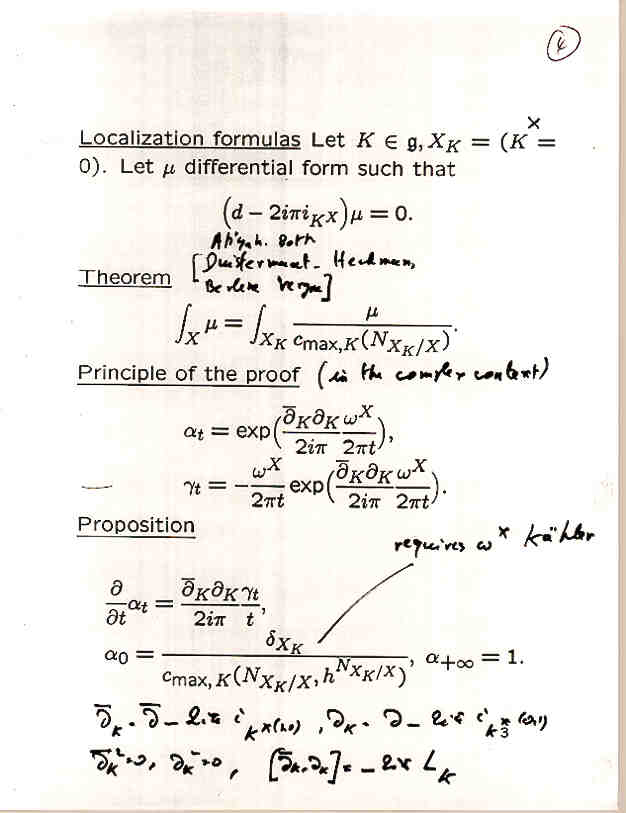 4
Localization formulas Let K ∈ g, X_K = (K^X =
0). Let μ differential form such that
(d − 2iπi_{K^X})μ = 0.
Atiyah. Bott
[Duistermaat. Heckman,
Theorem
Berline Vergne]
∫_X μ = ∫_{X_K} μ / c_{max,K}(N_{X_K/X}).
Principle of the proof (in the complex context)
α_t = exp( (∂̄_K ∂_K / 2iπ) (ω^X / 2πt) ),
γ_t = − (ω^X / 2πt) exp( (∂̄_K ∂_K / 2iπ) (ω^X / 2πt) ).
Proposition
requires ω^X Kähler
∂/∂t α_t = (∂̄_K ∂_K / 2iπ) (γ_t / t),
α_0 = δ_{X_K} / c_{max,K}(N_{X_K/X}, h^{N_{X_K/X}}), α_{+∞} = 1.
∂̄_K = ∂̄ − 2iπ i_{K^{X(1,0)}}, ∂_K = ∂ − 2iπ i_{K^{X(0,1)}}
∂̄_K^2 = 0, ∂_K^2 = 0, [∂̄_K, ∂_K] = − 2iπ L_K